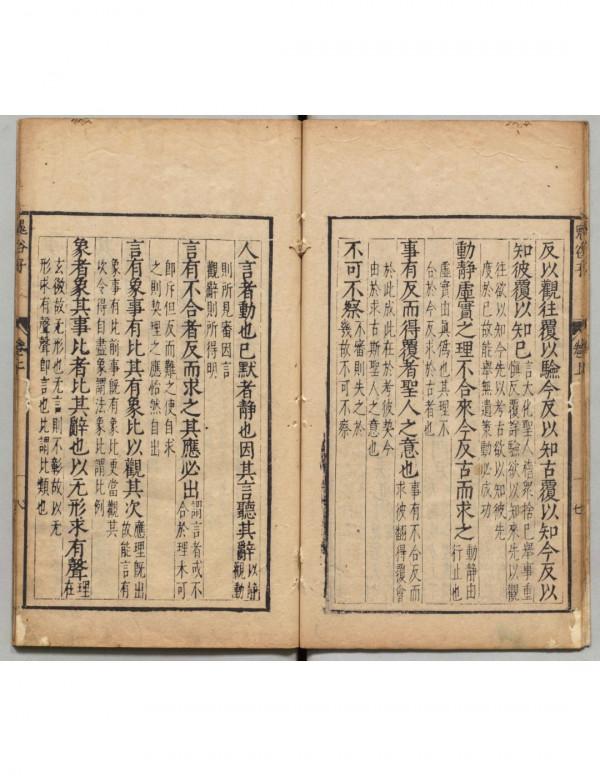 反以觀往覆以驗今反以知古覆以知今反以
知彼覆以知已
言大化聖人稽眾捨已舉事重
慎反覆詳驗欲以知來先以觀
往欲以知今先以考古欲以知彼先
度於已故能舉無遺策動必成功
動靜虛實之理不合來今反古而求之
動靜由
行止也
虛實由真偽也其理不
合於今反求於古者也
事有反而得覆者聖人之意也
事有不合反而
求彼翻得覆會
於此成此在於考彼契今
由於求古斯聖人之意也
不可不察
不審則失之於
幾故不可不察
卷上
七
人言者動也已默者靜也因其言聽其辭
以靜
觀動
則所見審因言
觀辭則所得明
言有不合者反而求之其應必出
謂言者或不
合於理未可
即斥但反而難之使自求
之則契理之應怡然自出
言有象事有比其有象比以觀其次
應理既出
故能言有
象事有比前事既有象比更當觀其
次令得自盡象謂法象比謂比例
象者象其事比者比其辭也以無形求有聲
理在
玄微故无形也无言則不彰故以无
形求有聲聲即言也比謂比類也
鬼谷子
卷上
八